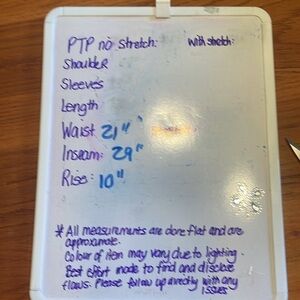 PTP no stretch: With stretch:
Shoulder
Sleeves
Length
Waist 21"
Inseam: 29"
Rise: 10"
* All measurements are done flat and are
approximate.
Colour of item may vary due to lighting.
Best effort made to find and disclose
flaws. Please follow up directly with any
issues